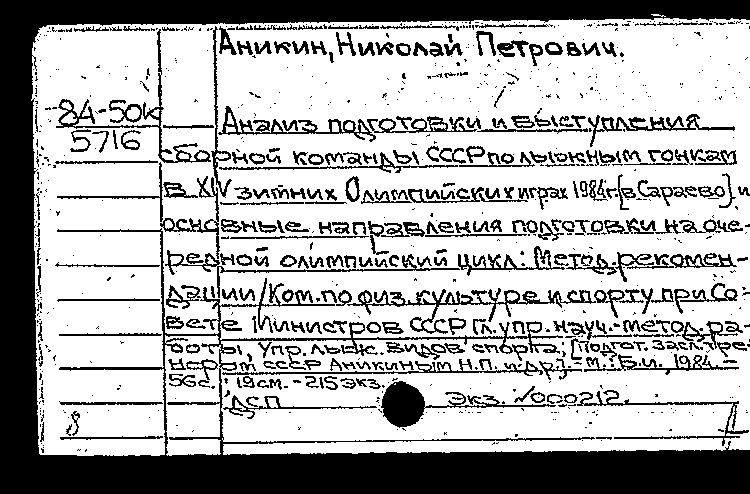 Аникин, Николай Петрович.
84-50к
5716
Анализ подготовки и выступления
сборной команды СССР по лыжным гонкам
в XIV зимних Олимпийских играх 1984 г. [в Сараево] и
основные направления подготовки на оче-
редной олимпийский цикл: Метод. рекомен-
дации / Ком. по физ. культуре и спорту при Со-
вете Министров СССР Гл. упр. науч.-метод. ра-
боты, Упр. лыж. видов спорта; [Подгот. засл. тре-
нером СССР Аникиным Н.П. и др.]. - М.: Б.и., 1984. -
56 с.; 19 см. - 215 экз.
ДСП Экз. №000212.
8